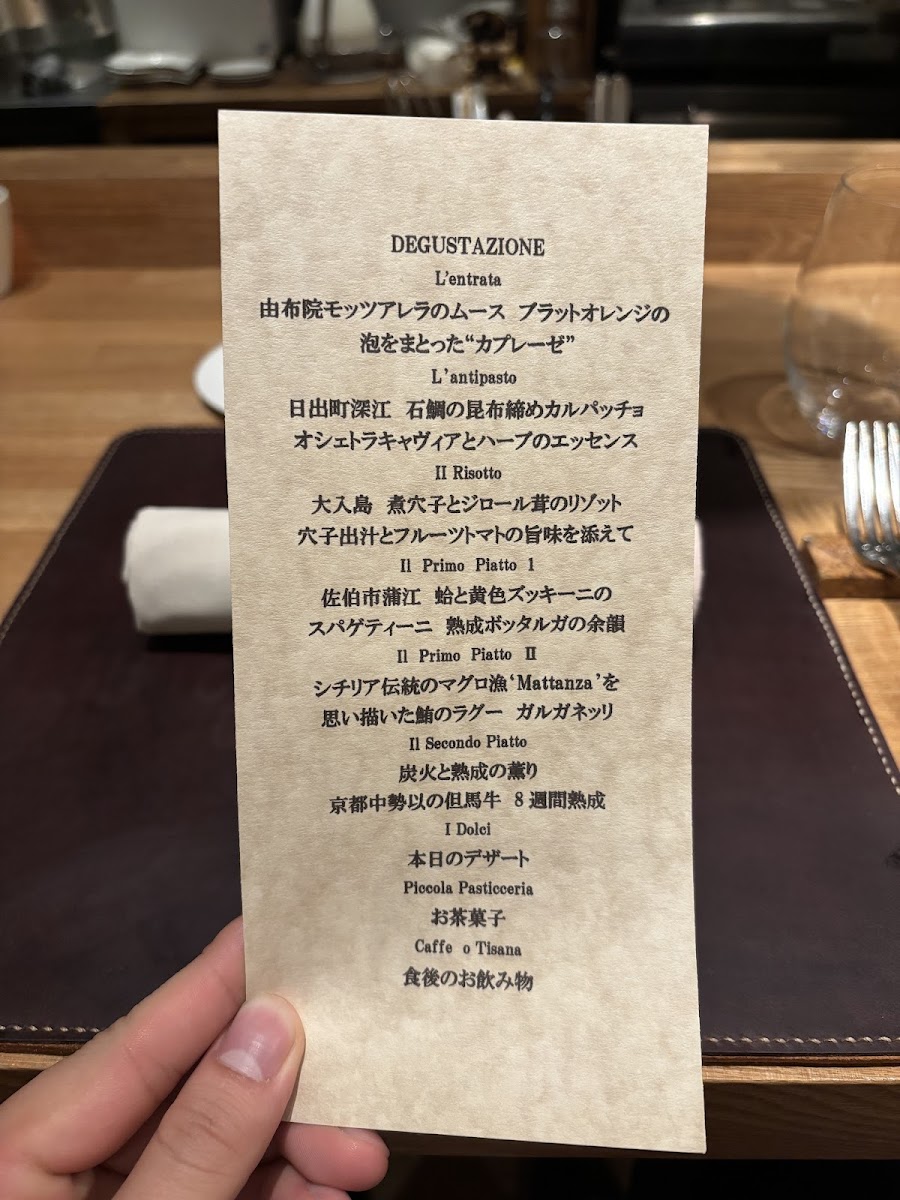 DEGUSTAZIONE
L'entrata
由布院モッツアレラのムース ブラットオレンジの
泡をまとった“カプレーゼ”
L'antipasto
日出町深江 石鯛の昆布締めカルパッチョ
オシェトラキャヴィアとハーブのエッセンス
Il Risotto
大入島 煮穴子とジロール茸のリゾット
穴子出汁とフルーツトマトの旨味を添えて
Il Primo Piatto 1
佐伯市蒲江 蛤と黄色ズッキーニの
スパゲティーニ 熟成ボッタルガの余韻
Il Primo Piatto Ⅱ
シチリア伝統のマグロ漁‘Mattanza’を
思い描いた鮪のラグー ガルガネッリ
Il Secondo Piatto
炭火と熟成の薫り
京都中勢以の但馬牛 8週間熟成
I Dolci
本日のデザート
Piccola Pasticceria
お茶菓子
Caffe o Tisana
食後のお飲み物